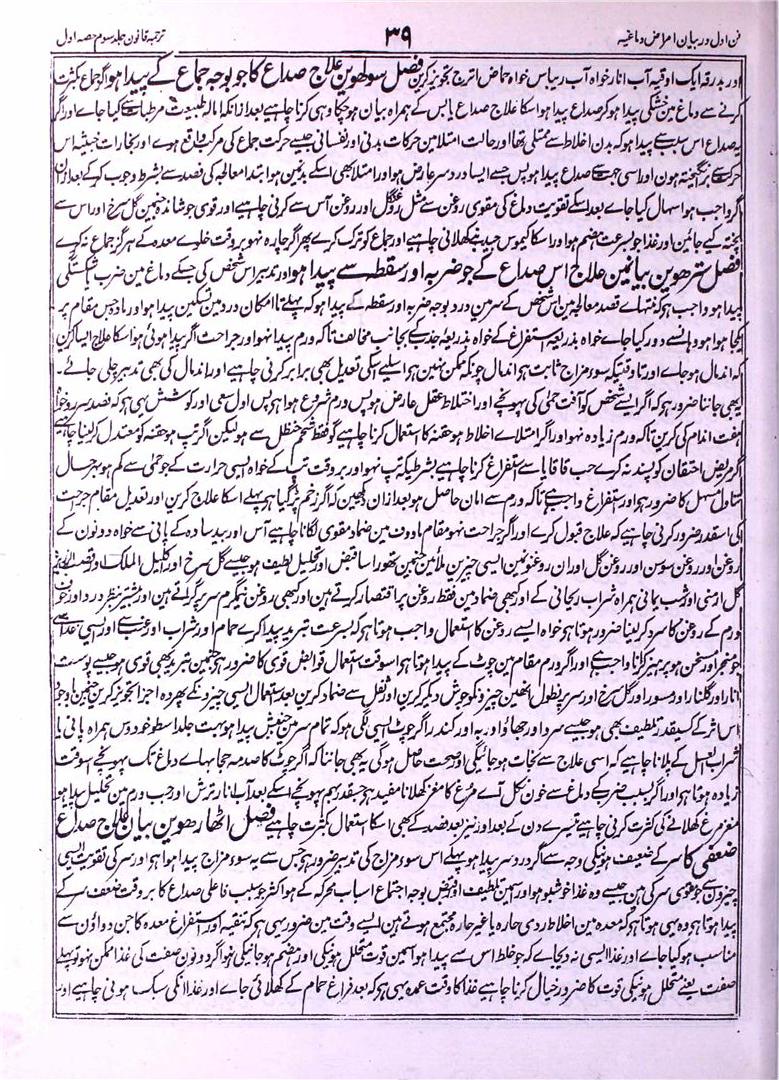 فن اول در بیان امراض دماغیہ ۳۹ ترجمہ قانون جلد سوم حصہ اول
اور بدرقہ ایک اوقیہ آب انار خواہ آب ریباس خواہ حماض اترج تجویز کرین فصل سولھوین علاج صداع کا جو بوجہ جماع کے پیدا ہو اگر جماع بکثرت
کرنے سے دماغ مین خشکی پیدا ہو کر صداع پیدا ہو اسکا علاج صداع یابس کے ہمراہ بیان ہوچکا وہی کرنا چاہیے بعد ازانکہ امالہ طبیعت مرطبات سے کیا جاے اور اگر
یہ صداع اس سبب سے پیدا ہو کہ بدن اخلاط سے ممتلی تھا اور حالت امتلا مین حرکات بدنی اور نفسانی جیسے حرکت جماع کی مرکب واقع ہوے اور بخارات خبیثہ اس
حرکت سے برانگیختہ ہون اور اسی جہت سے صداع پیدا ہو پس جسے ایسا درد سر عارض ہو اور امتلا بھی اسکے بدن مین ہو ابتدا معالجہ کی فصد سے بشرط وجوب کرکے بعد ازان
اگر واجب ہو اسہال کیا جاے بعد اسکے تقویت دماغ کی مقوی روغن سے مثل روغن گل اور روغن آس سے کرنی چاہیے اور قوی جوشاندہ جنمین گل سرخ اور اس سے
پختہ کیے جائین اور غذا جو بسرعت ہضم ہو اور اسکا کیموس جید بنے کھلانی چاہیے اور جماع کو ترک کرے پھر اگر چارہ نہو بروقت خلوے معدہ کے ہرگز جماع نہ کرے
فصل سترھوین بیان مین علاج اس صداع کے جو ضربہ اور سقطہ سے پیدا ہو اور تدبیر اس شخص کی جسکے دماغ مین ضرب شکستگی
پیدا ہو واجب ہو کہ منتہاے قصد معالجہ مین اس شخص کے سر مین درد بوجہ ضربہ اور سقطہ کے پیدا ہو کہ پہلے تا امکان درد مین تسکین پیدا ہو اور مادہ جس مقام پر
یکجا ہو وہانسے دور کیا جاے خواہ بذریعہ استفراغ کے خواہ بذریعہ جذب کے بجانب مخالف تاکہ ورم پیدا نہو اور جراحت اگر پیدا ہوئی ہو اسکا علاج ایسا کرین
کہ اندمال ہو جاے اور تا وقتیکہ سوء مزاج ثابت ہو اندمال چونکہ ممکن نہین ہو اسلیے اسکی تعدیل بھی برابر کرنی چاہیے اور اندمال کی بھی تدبیر چلی جائے۔
یہ بھی جاننا ضرور ہو کہ اگر ایسے شخص کو آفت حمی کی پہونچے اور اختلاط عقل عارض ہو پس ورم شروع ہوا ہو پس اول سعی اور کوشش یہی ہو کہ فصد سر رو خواہ
ہفت اندام کی کرین تاکہ ورم زیادہ نہو اور اگر امتلاے اخلاط ہو حقنہ کا استعمال کرنا چاہیے گو فقط شحم حنظل سے ہو لیکن اگر تپ ہو حقنہ کو معتدل کرلینا چاہیے
اگر مریض احتقان کو پسند نہ کرے حب قاقایا سے استفراغ کرنا چاہیے بشرطیکہ تپ نہو اور بروقت تپ کے خواہ ایسی حرارت کے جو حمی سے کم ہو بہرحال
تناول مسہل کا ضرور ہو اور استفراغ واجب ہے تاکہ ورم سے امان حاصل ہو بعد ازان دیکھین کہ اگر زخم پڑ گیا ہو پہلے اسکا علاج کرین اور تعدیل مقام جراحت
کی اسقدر ضرور کرنی چاہیے کہ علاج قبول کرے اور اگر جراحت نہو مقام ماوف مین ضماد مقوی لگانا چاہیے آس اور بید سادہ کے پانی سے خواہ دونون کے
روغن اور روغن سوسن اور روغن گل اور ان روغنونمین ایسی چیزین ملائین جنمین تھوڑا سا قبض اور تحلیل لطیف ہو جیسے گل سرخ اور اکلیل الملک اور قصب الذریرہ
گل ارمنی اور شب یمانی ہمراہ شراب ریحانی کے اور کبھی ضماد مین فقط روغن پر اقتصار کرتے ہین اور کبھی روغن نیمگرم سر پر گراتے ہین اور بیشتر بنظر درد اور خوف
ورم کے روغن کا سرد کرلینا ضرور ہوتا ہو خواہ ایسے روغن کا استعمال واجب ہوتا ہو کہ بسرعت تبرید پیدا کرے حمام اور شراب اور غضب سے اور ایسی غذا سے
جو مبخر اور مسخن ہو پرہیز کرانا واجب ہے اور اگر ورم مقام مین چوٹ کے پیدا ہوتا ہو اسوقت استعمال قوابض قوی کا ضرور ہو جنمین تبرید بھی قوی ہو جیسے پوست
انار اور گلنار اور مسور اور گل سرخ اور سر پر نطول انھین چیزونکو جوش دیکر کرین اور ثفل سے ضماد کرین بعد استعمال ایسی چیزونکے پھر وہ اجزا تجویز کرین جنمین باوجود
اس اثر کے کسیقدر تلطیف بھی ہو جیسے سرو اور جھاؤ اور بہ اور کندر اگر چوٹ ایسی لگی ہو کہ تمام سر مین جنبش پیدا ہو بہت جلد اسطوخودوس ہمراہ پانی یا
شراب العسل کے پلانا چاہیے کہ اسی علاج سے نجات ہو جائیگی اور صحت حاصل ہو گی یہ بھی جاننا کہ اگر چوٹ کا صدمہ حجابہاے دماغ تک پہونچے اسوقت
زیادہ ہوتا ہو اور اگر بسبب ضرب کے دماغ سے خون نکل آے مرغ کا مغز کھلانا مفید ہو جسقدر بہم پہونچے اسکے بعد آب انار ترش اور جب ورم مین تحلیل پیدا ہو
مغز مرغ کھلانے کی کثرت کرنی چاہیے تیسرے دن کے بعد اور نیز بعد فصد کے بھی اسکا استعمال بکثرت چاہیے فصل اٹھارھوین بیان علاج صداع
ضعفی کا سر کے ضعیف ہونیکی وجہ سے اگر درد سر پیدا ہو پہلے اس سوء مزاج کی تدبیر ضرور ہو جس سے یہ سوء مزاج پیدا ہوا ہو اور سر کی تقویت ایسی
چیزون سے جو مقوی سر کی ہین جیسے وہ غذا خوشبو ہو اور اسمین تلطیف اور قبض بوجہ اجتماع اسباب محرکہ کے ہو اکثر جو سبب فاعلی صداع کا بروقت ضعف سر کے
پیدا ہوتا ہو وہ یہی ہوتا ہو کہ معدہ مین اخلاط ردی حارہ یا غیر حارہ مجتمع ہوتے ہین ایسے وقت مین ضرور یہی ہو کہ تنقیہ اور استفراغ معدہ کا جن دواؤن سے
مناسب ہو کیا جاے اور غذا ایسی نہ دیجاے کہ جو خلط اس سے پیدا ہو اسمین قوت متحلل ہونیکی اور ہضم ہو جانیکی نہو اگر دونون صفت کی غذا ممکن نہو تو پہلے
صفت یعنے متحلل ہونیکی قوت کا ضرور خیال کرنا چاہیے غذا کا وقت عمدہ یہی ہو کہ بعد فراغ حمام کے کھلائی جاے اور غذا انکی سبک ہونی چاہیے اور